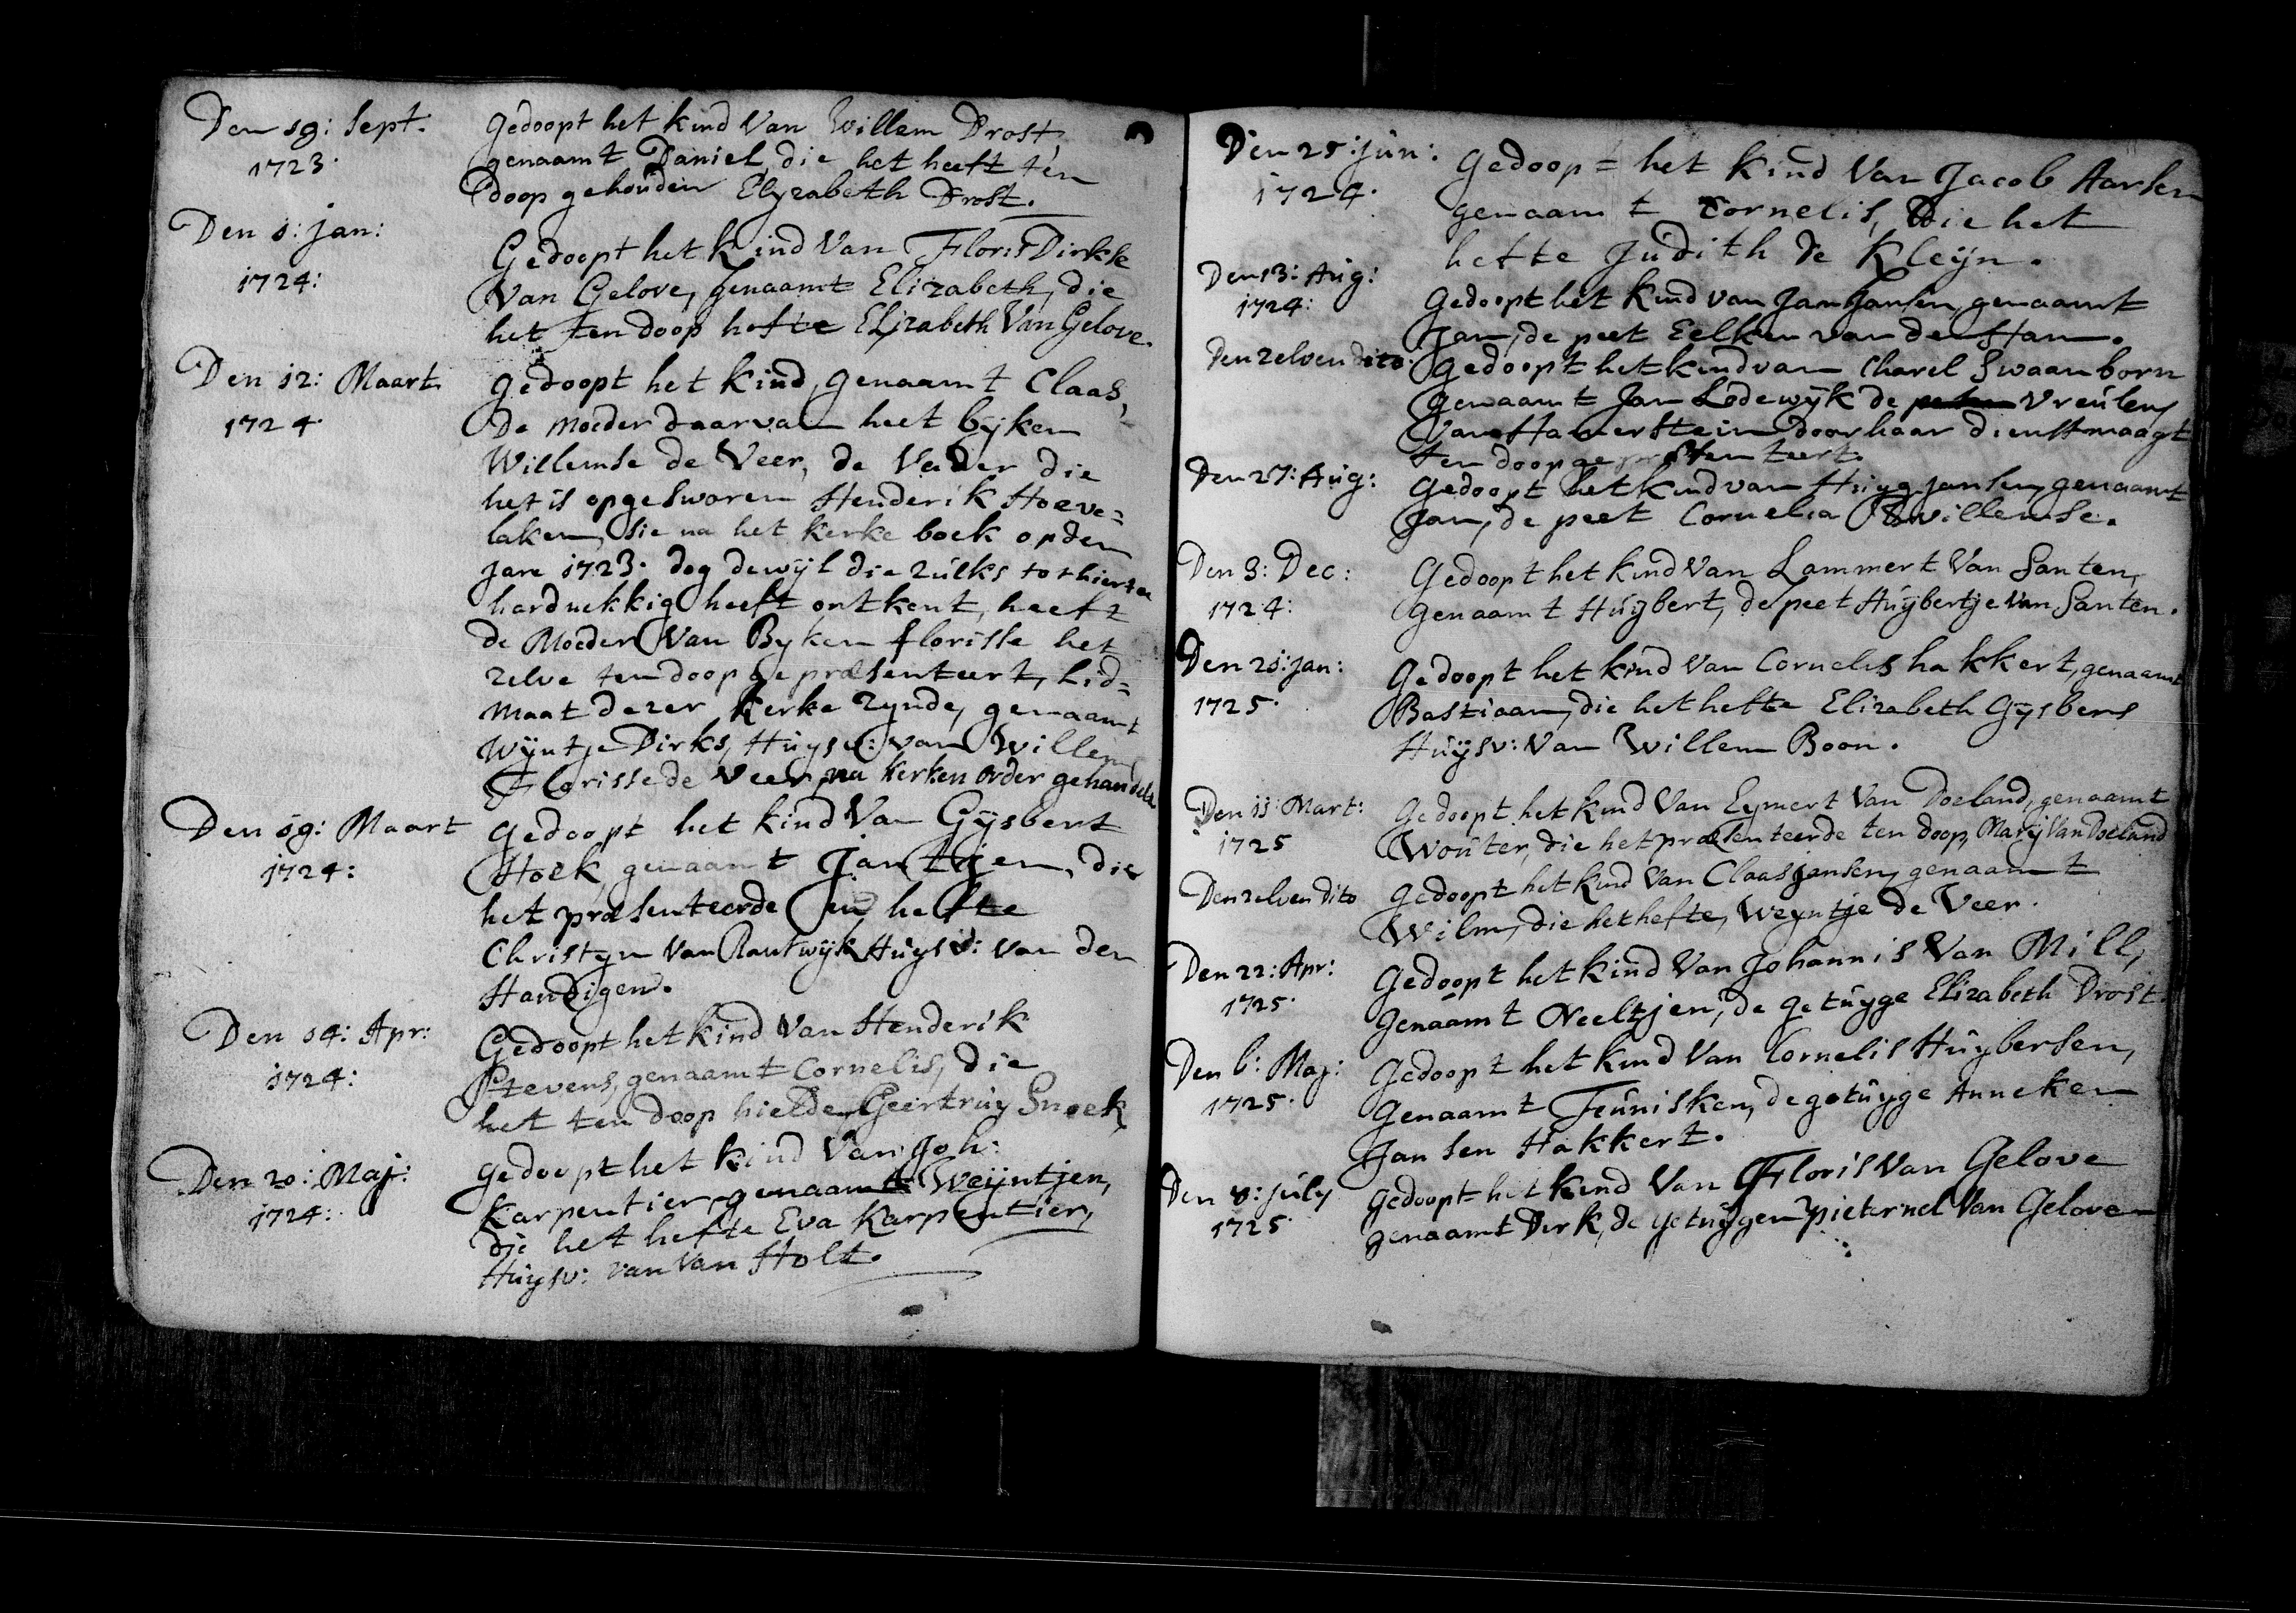 Den 19: Sept.
1723.
Gedoopt het kind Van Willem Drost,
genaamt Daniel, die het heeft ten
doop gehouden Elyzabeth Drost.
Den 1: jan:
1724:
Gedoopt het Kind Van Floris Dirkse
Van Gelove, genaamt Elizabeth, die
het ten doop hefte Elizabeth Van Gelove.
Den 12: Maart
1724.
Gedoopt het kind, genaamt Claas,
De Moeder daarvan heet byken
Willemse de Veer, de Vader die
het is opgesworen Henderik Hoeve=
laken, Sie na het kerke boek op den
Jare 1723. dog dewijl die zulks tot hier toe
hardnekkig heeft ontkent, heeft
de Moeder Van Byken florisse het
zelve ten doop gepræsenteert, Lid=
maat dezer Kerke zynde, genaamt
Wyntje Dirks, Huysv: van Willem
Florisse de Veer, na kerken order gehandelt
Den 19: Maart
1724:
Gedoopt het kind Van Gijsbert
Hoek genaamt Jantijen, die
het præsenteerde en hefte
Christyn Van Rautwijk Huysv: van den
Handigen.
Den 14: Apr:
1724:
Gedoopt het kind Van Henderik
Stevens, genaamt Cornelis, die
het ten doop hielde, Geertruy Snoek
Den 20: Maj:
1724:
Gedoopt het kind Van Joh:
Karpentier, genaamt Weijntjen,
die het hefte Eva Karpentier,
Huysv: van Van Holt.
Den 25: jun:
1724.
Gedoopt het kind Van Jacob Aarsen
genaamt Cornelis, Die het
hefte Judith de Kleyn.
Den 13: Aug:
1724:
Gedoopt het kind van Jan Jansen, genaamt
Jan, de peet Eelken van der Ham.
Den zelven dito.
Gedoopt het kind van Charel Swaanborn
Genaamt Jan Lodewijk de Vreulen
Van Hamerstein door haar dienstmaagt
ten doop gepræsenteert.
Den 27: Aug:
Gedoopt het kind van Huyg Jansen, genaamt
Jan, de peet Cornelia Willemse.
Den 3: Dec:
1724:
Gedoopt het kind Van Lammert Van Santen,
Genaamt Huijbert, de peet Huijbertje Van Santen.
Den 21: jan:
1725.
Gedoopt het kind Van Cornelis hakkert, genaamt
Bastiaan, die het hefte Elizabeth Gijsbers
Huijsv: Van Willem Boon.
Den 11: Mart:
1725
Gedoopt het kind Van Eymert Van Doeland, genaamt
Wouter, die het præsenteerde ten doop, Marij Van Doeland
Den zelven dito
Gedoopt het kind Van Claas Jansen, genaamt
Wilm, die het hefte, Weyntje de Veer.
Den 22: Apr:
1725.
Gedoopt het kind Van Johannis Van Mill,
Genaamt Neeltjen, de getuyge Elizabeth Drost.
Den 6: Maj:
1725.
Gedoopt het kind Van Cornelis Huybersen,
Genaamt Teunisken, de getuyge Anneken
Jansen Hakkert.
Den 8: july
1725.
Gedoopt het kind Van Floris Van Gelove
genaamt Dirk, de getuygen Pieternel Van Gelove